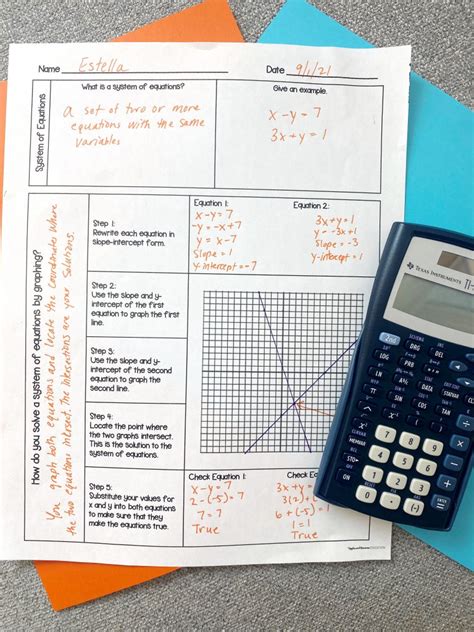 Name Estella Date 9/1/21
System of Equations
What is a system of equations?
a set of two or more
equations with the same
variables
Give an example.
x - y = 7
3x + y = 1
How do you solve a system of equations by graphing?
You graph both equations and locate the coordinates where
the two equations intersect. The intersections are your solutions.
Step 1:
Rewrite each equation in
slope-intercept form.
Equation 1:
x - y = 7
-y = -x + 7
y = x - 7
Slope = 1
y-intercept = -7
Equation 2:
3x + y = 1
y = -3x + 1
Slope = -3
y-intercept = 1
Step 2:
Use the slope and y-
intercept of the first
equation to graph the first
line.
Step 3:
Use the slope and y-
intercept of the second
equation to graph the
second line.
Step 4:
Locate the point where
the two graphs intersect.
This is the solution to the
system of equations.
Step 5:
Substitute your values for
x and y into both equations
to make sure that they
make the equations true.
Check Equation 1:
x - y = 7
2 - (-5) = 7
7 = 7
True
Check Equation
3x + y =
3(2) +
6 + (-5) = 1
1 = 1
True
TEXAS INSTRUMENTS
TI-
2nd
DRG
DEL
LOG
PRB
LN
MEMORY
STO►
7
8
4
5
1
2
0